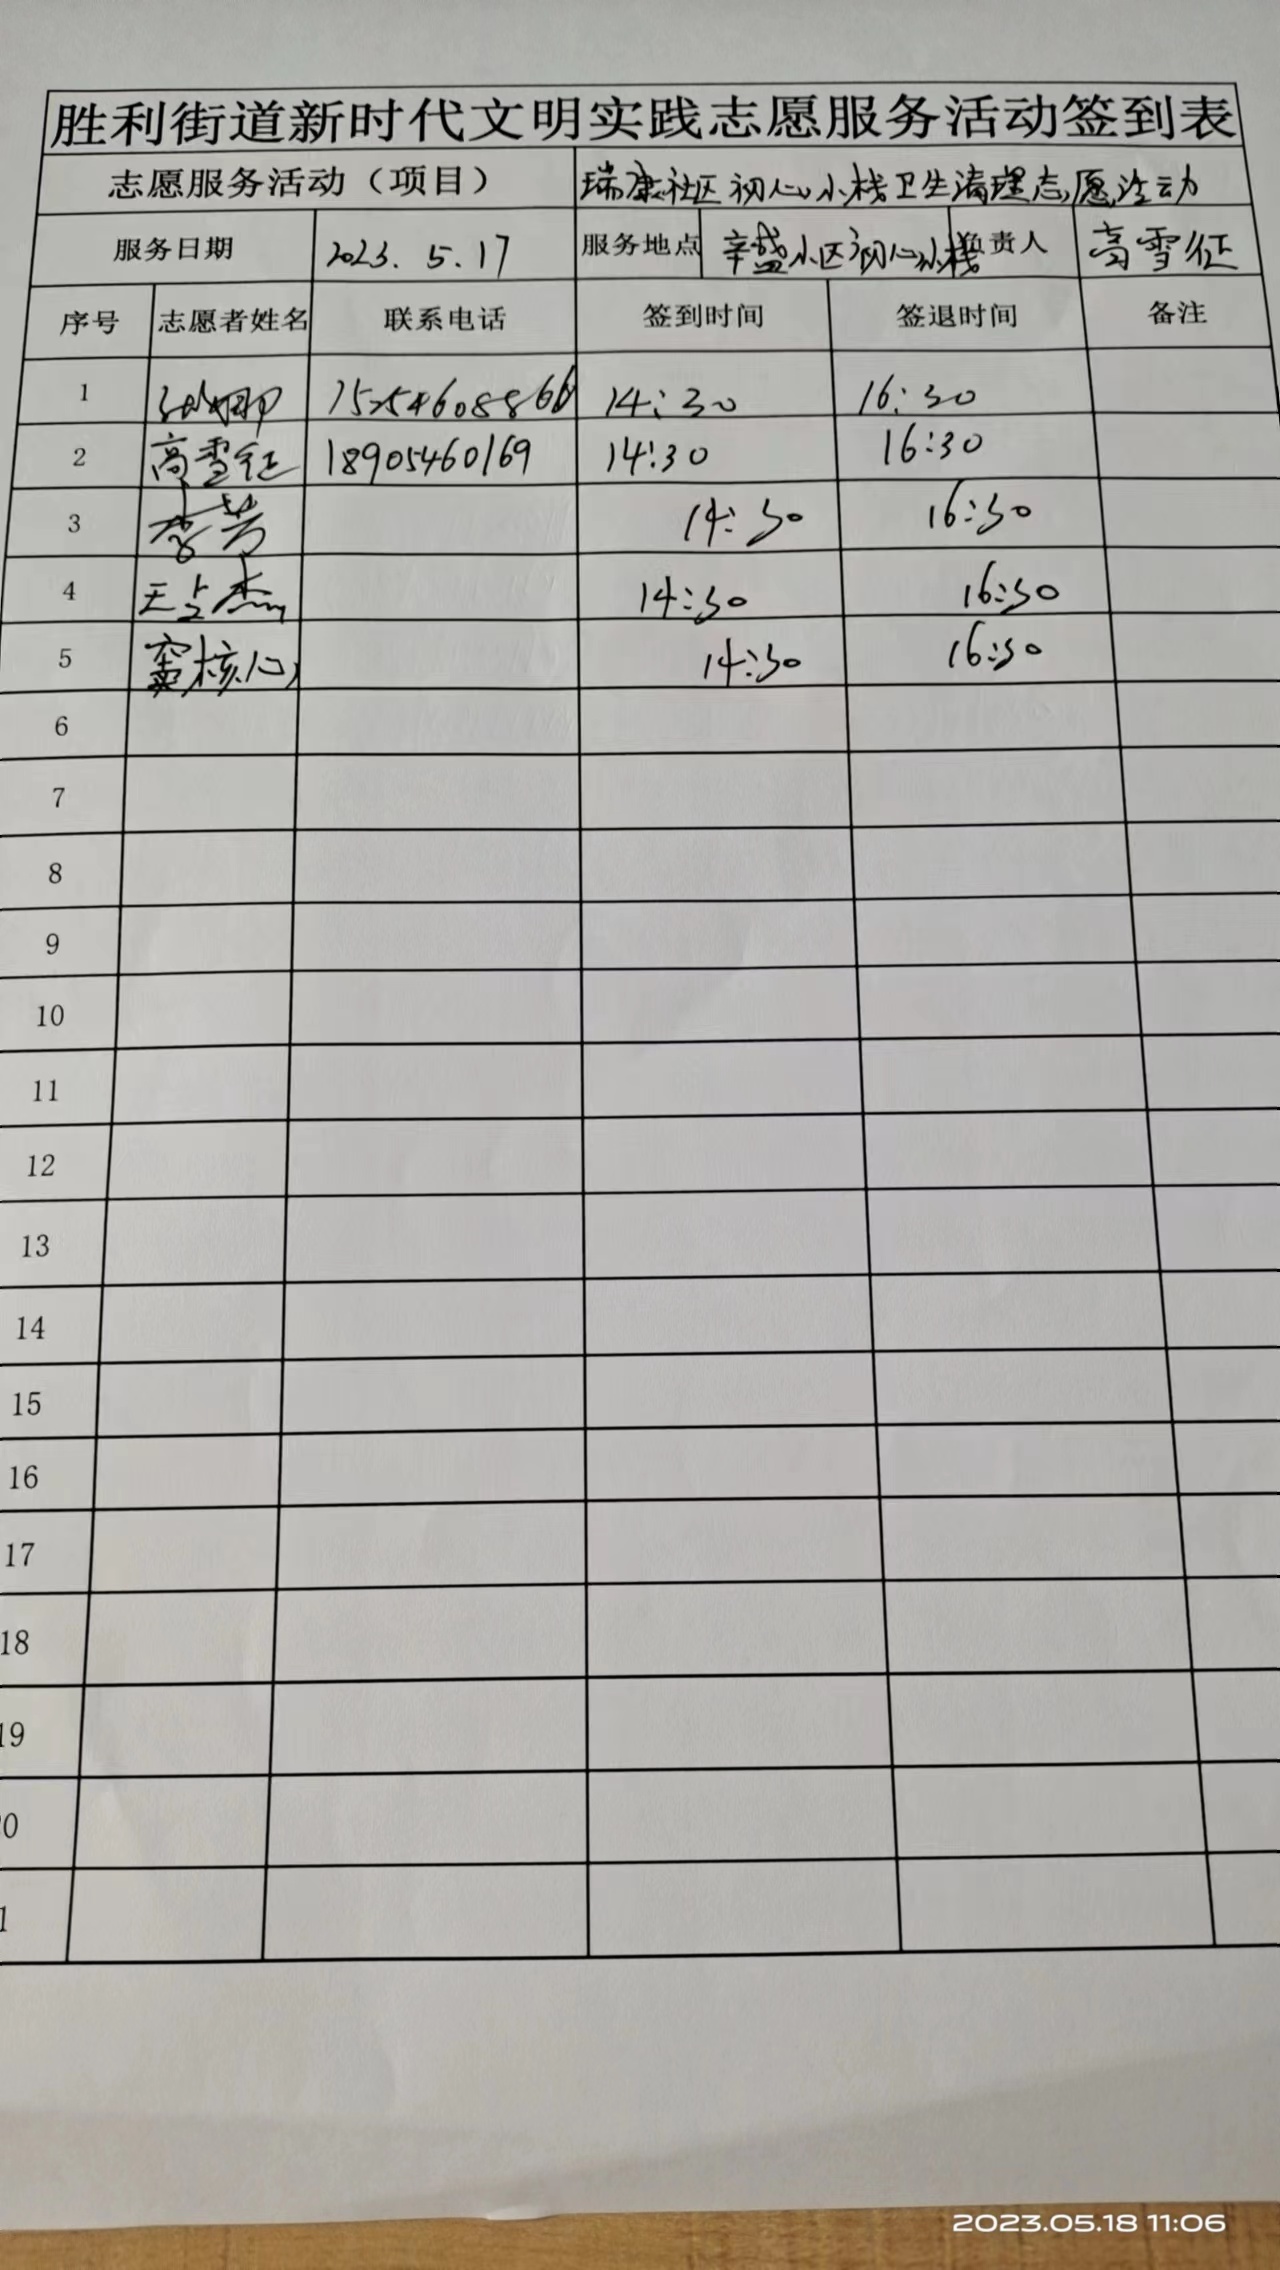 胜利街道新时代文明实践志愿服务活动签到表
志愿服务活动（项目） 瑞康社区初心小栈卫生清理志愿活动
服务日期 2023.5.17 服务地点 辛盛小区初心小栈 负责人 高雪征
序号 志愿者姓名 联系电话 签到时间 签退时间 备注
1 14:30 16:30
2 高雪征 18905460169 14:30 16:30
3 李芳 14:30 16:30
4 王占杰 14:30 16:30
5 窦核心 14:30 16:30
6
7
8
9
10
11
12
13
14
15
16
17
18
19
0
1
2023.05.18 11:06